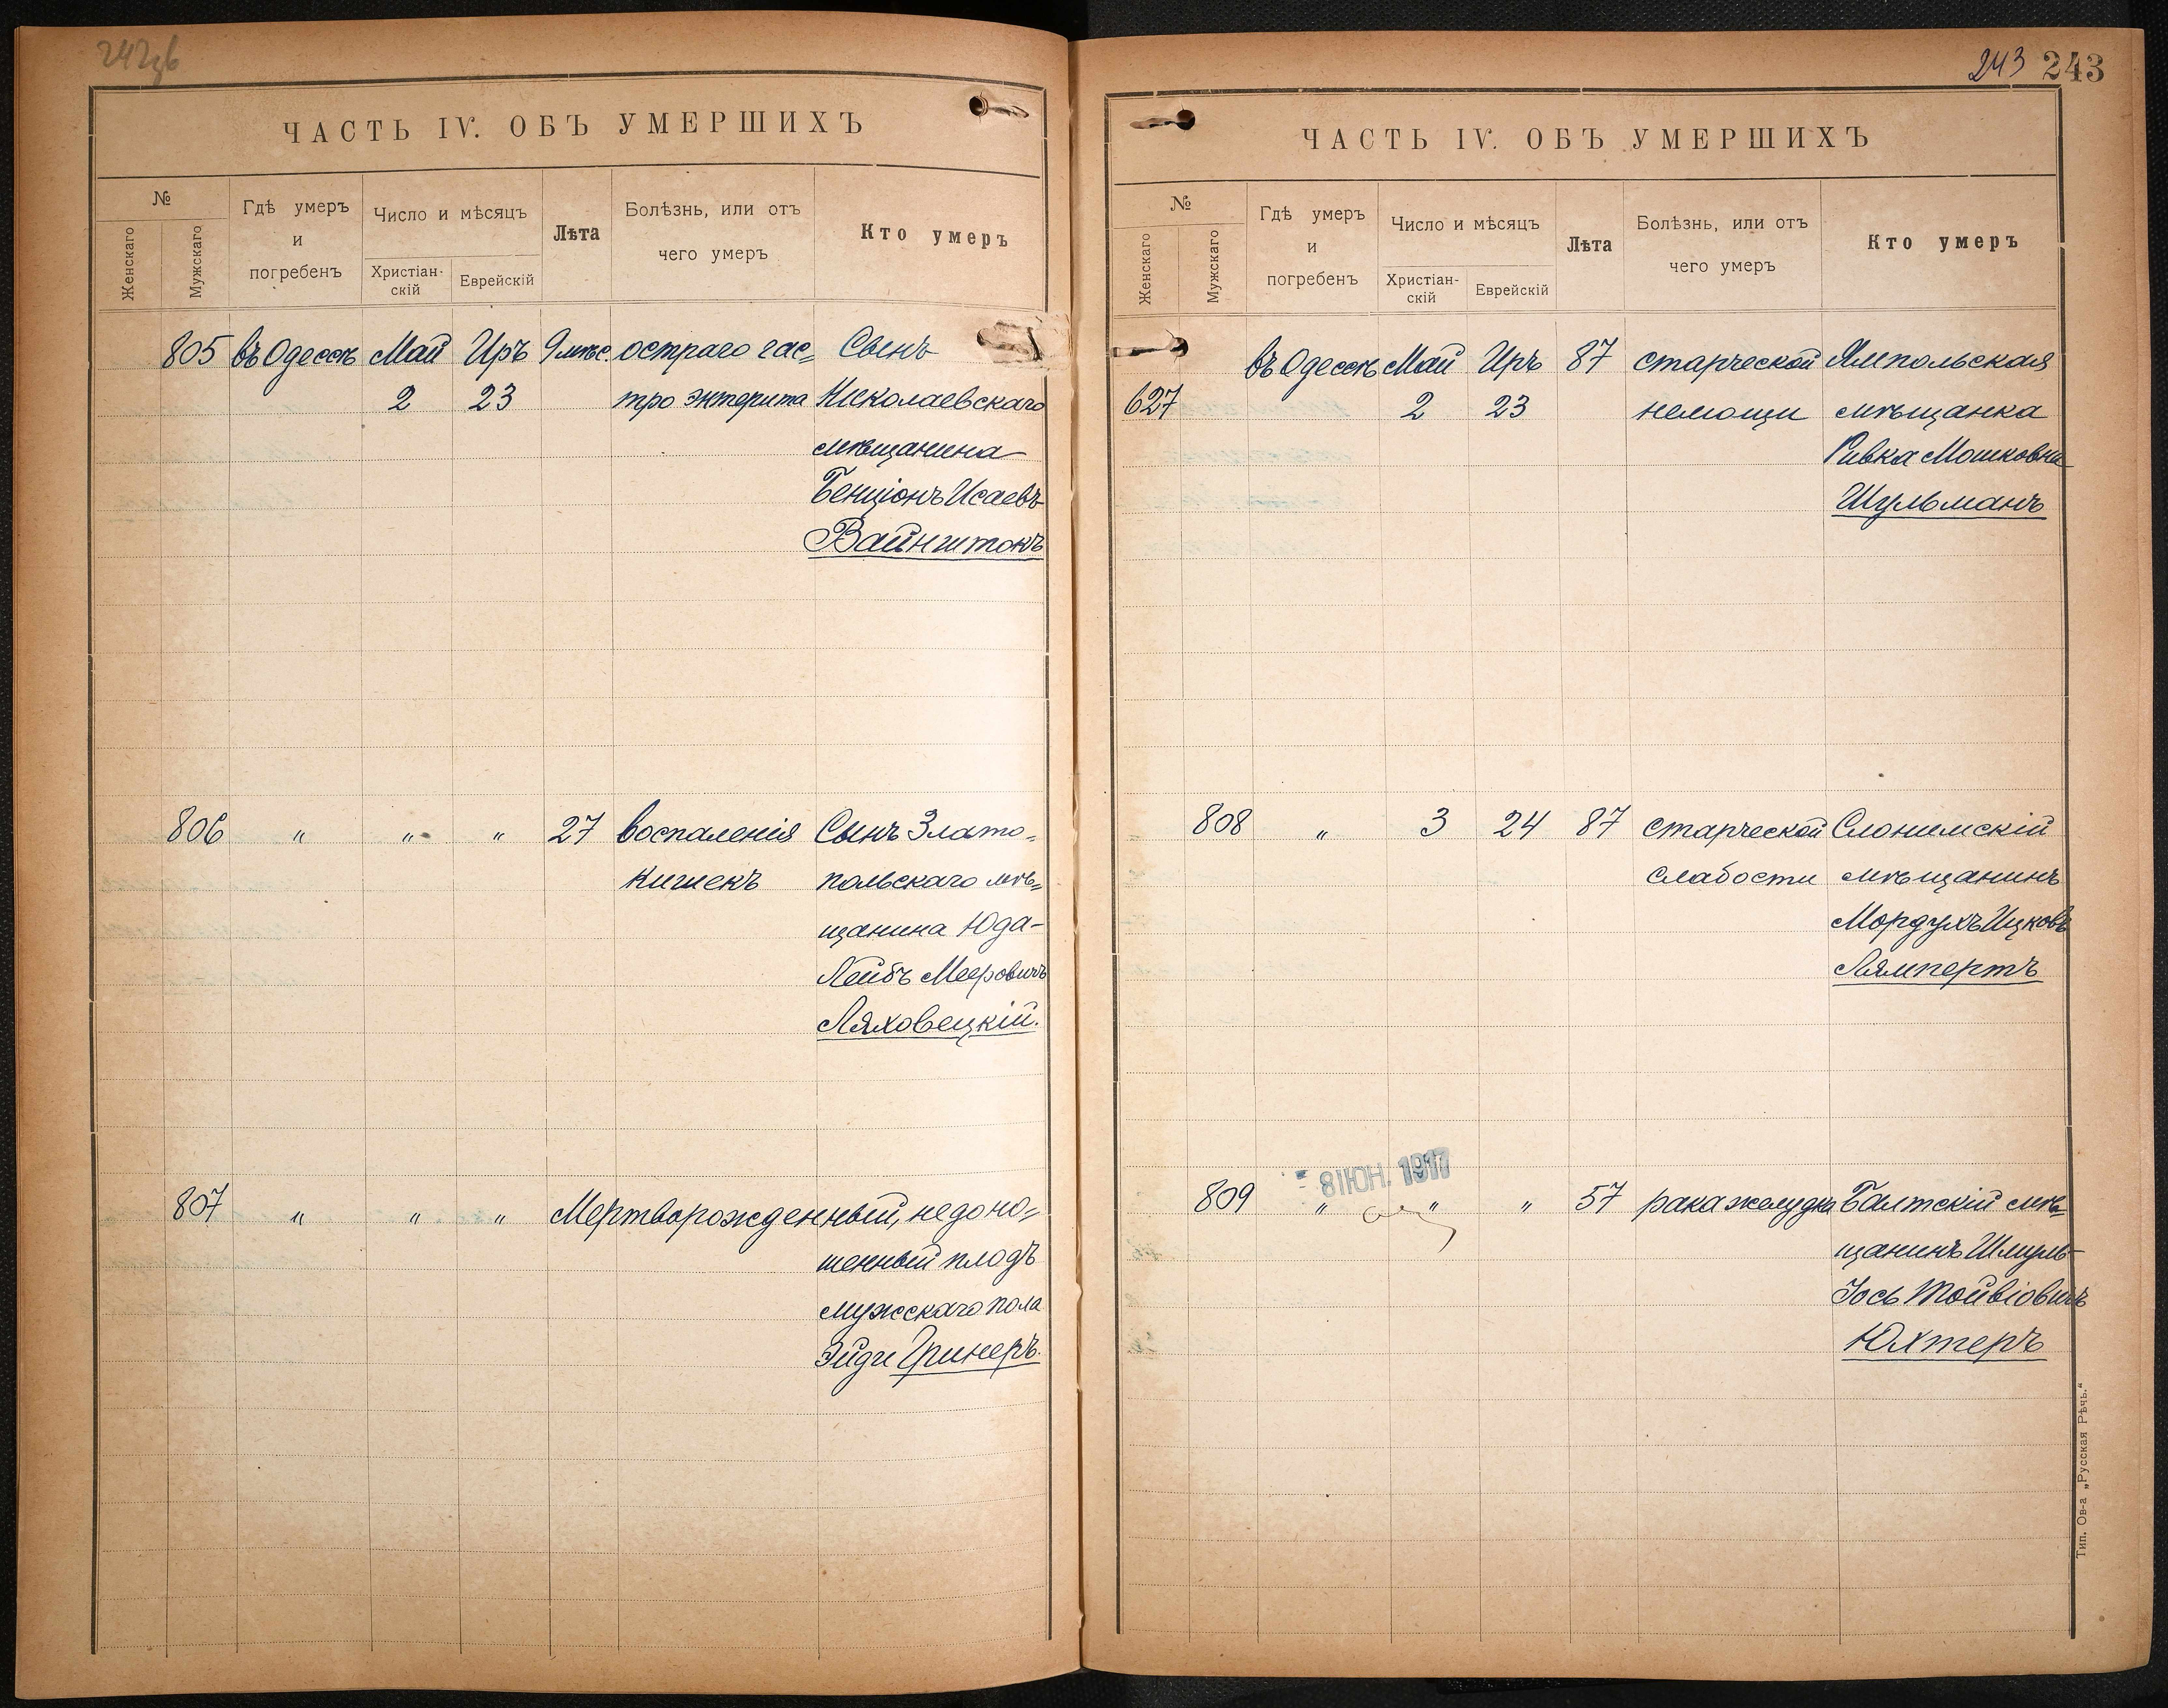 242об
ЧАСТЬ IV. ОБЪ УМЕРШИХЪ
№
Женскаго
Мужскаго
Гдѣ умеръ
и
погребенъ
Число и мѣсяцъ
Христіан-
скій
Еврейскій
Лѣта
Болѣзнь, или отъ
чего умеръ
Кто умеръ
805 въ Одессѣ Май Иръ 9 мѣс. остраго гас= Сынъ
2 23 тро энтерита Николаевскаго
мѣщанина
Бенціонъ Исаевъ
Вайнштокъ
806 " " " 27 воспаленія Сынъ Злато=
кишекъ польскаго мѣ=
щанина Юда-
Лейбъ Мееровичъ
Ляховецкій.
807 " " " Мертворожденный, недоно=
шенный плодъ
мужскаго пола
Эйди Гринеръ.
243 243
ЧАСТЬ IV. ОБЪ УМЕРШИХЪ
№
Женскаго
Мужскаго
Гдѣ умеръ
и
погребенъ
Число и мѣсяцъ
Христіан-
скій
Еврейскій
Лѣта
Болѣзнь, или отъ
чего умеръ
Кто умеръ
въ Одессѣ Май Иръ 87 старческой Ямпольская
627 2 23 немощи мѣщанка
Ривка Мошковна
Шульманъ
808 " 3 24 87 старческой Слонимскій
слабости мѣщанинъ
Мордухъ Ицковъ
Лямпертъ
- 8 ІЮН. 1917
809 " " " 57 рака желудка Балтскій мѣ=
щанинъ Шмуль-
Іось Тойвіовичъ
Юхтеръ
Тип. Ов-а „Русская Рѣчь.“